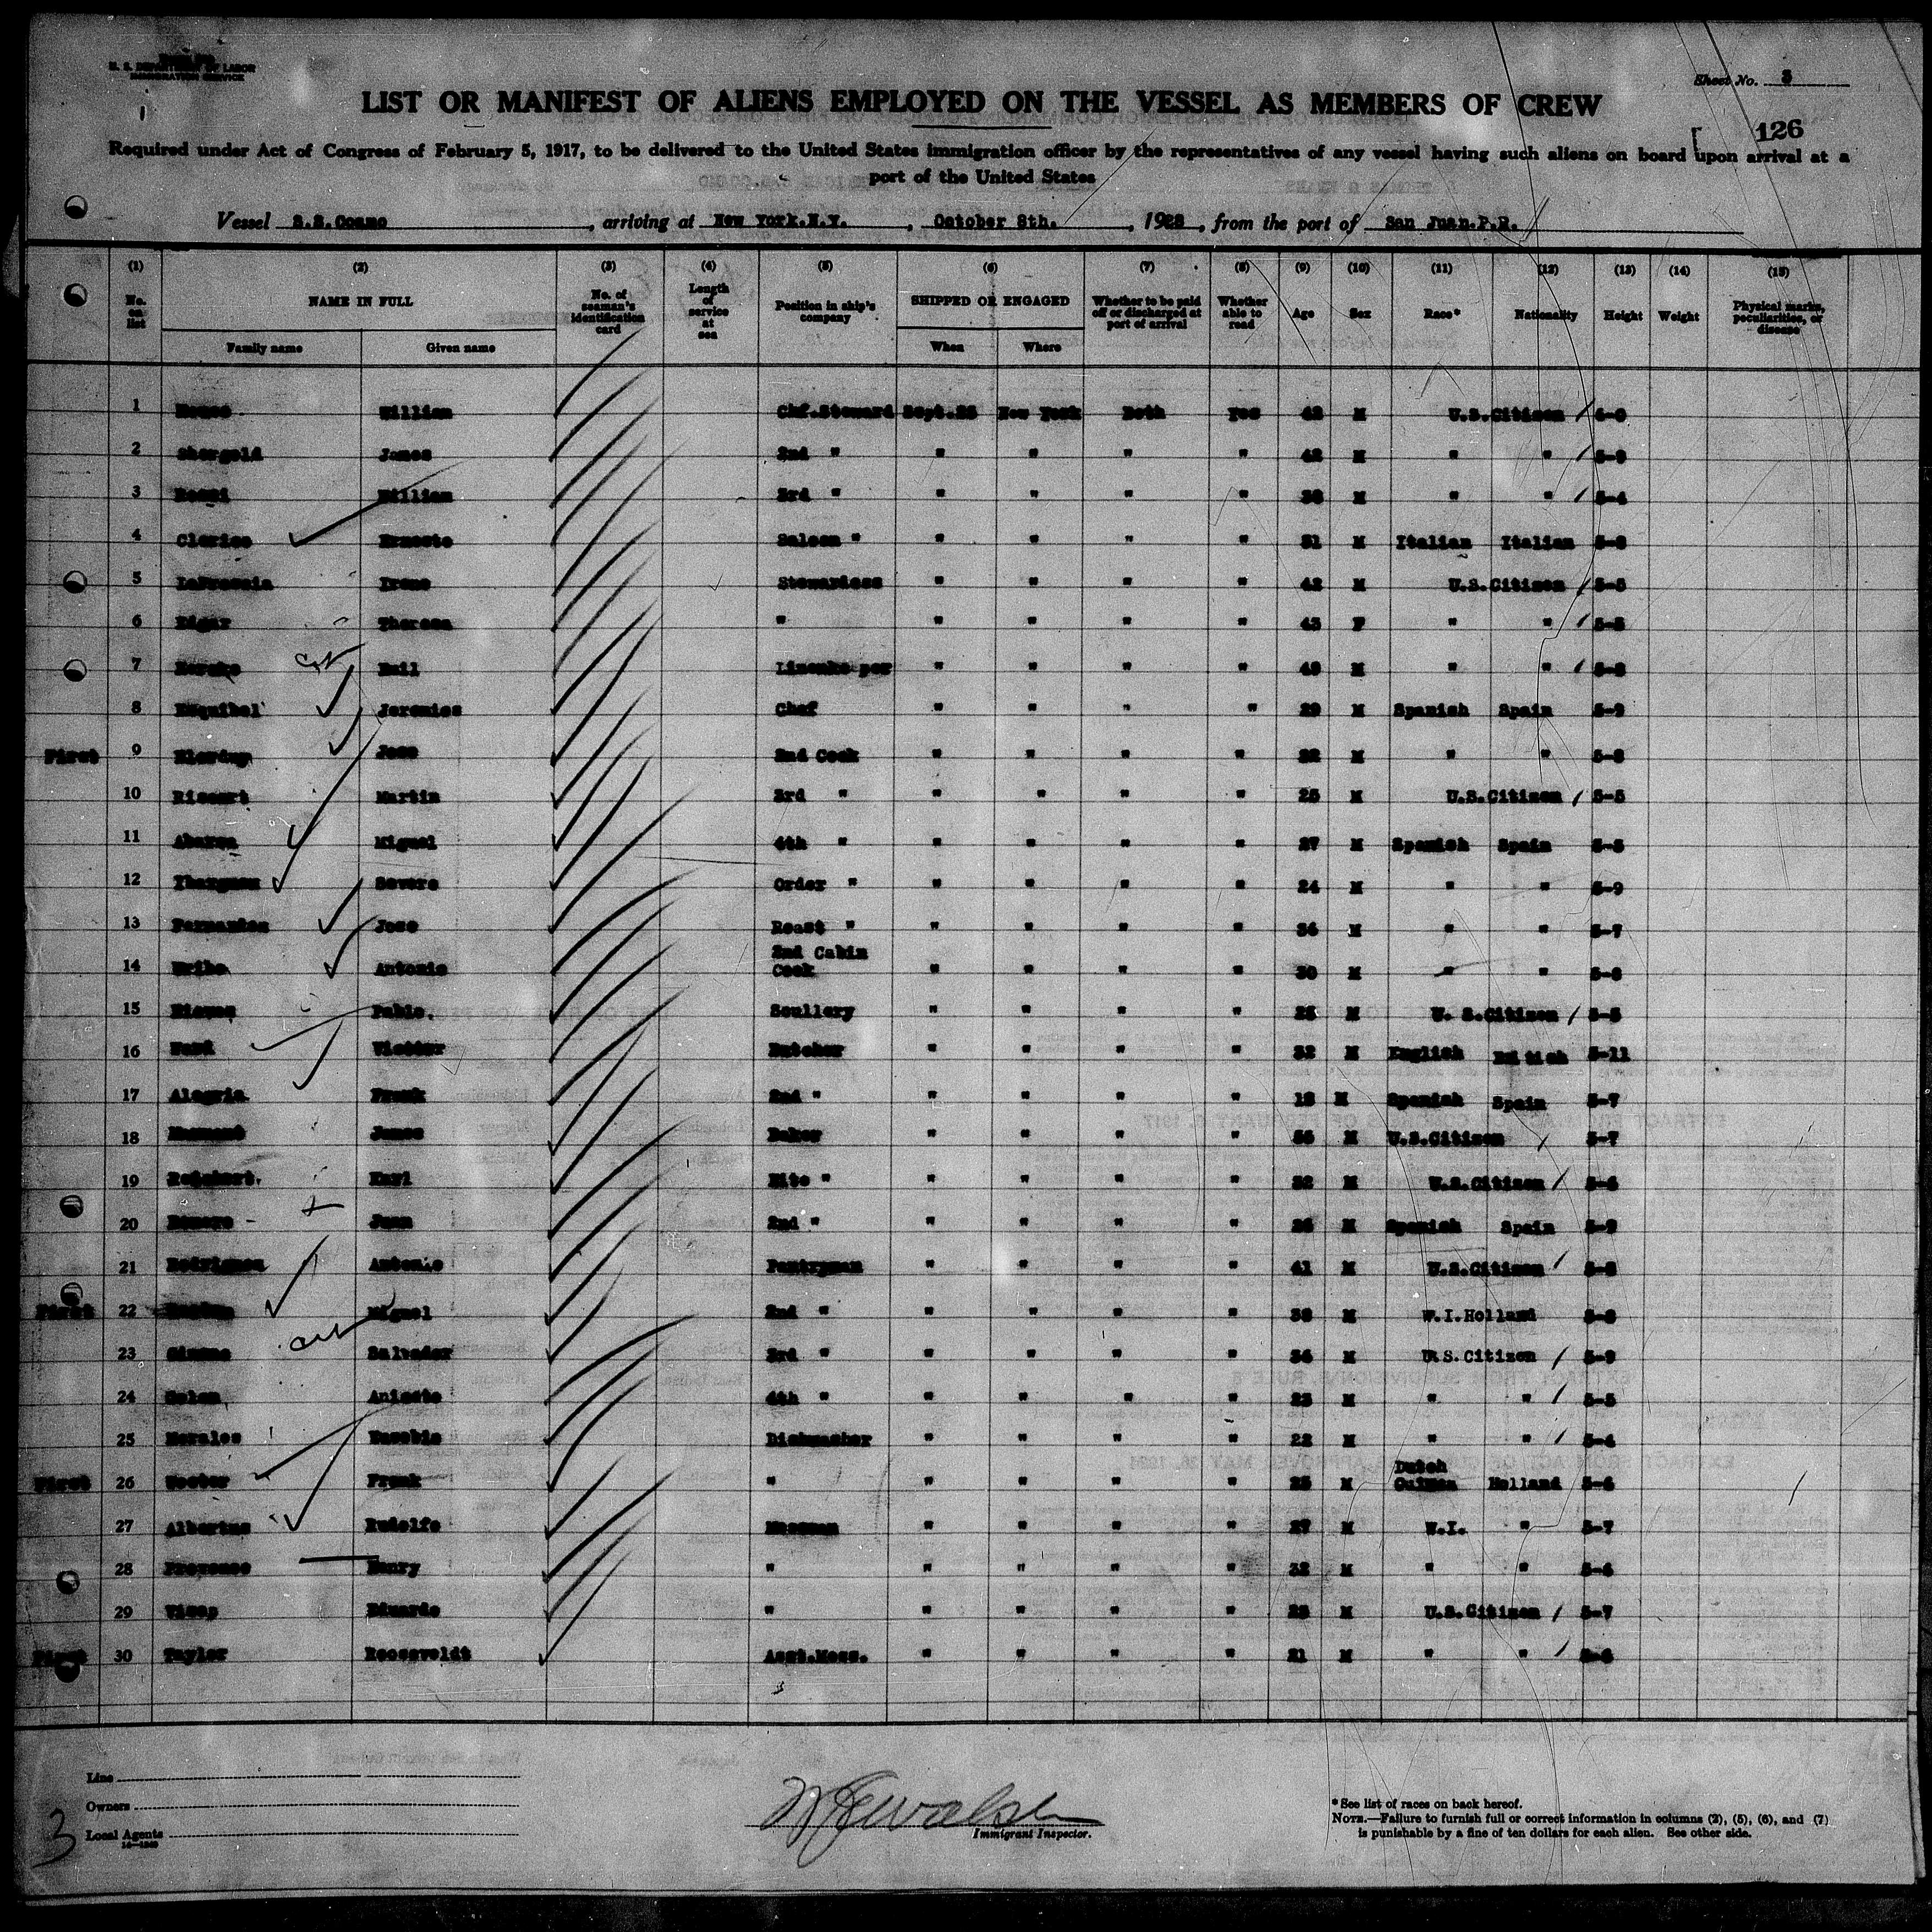 U. S. DEPARTMENT OF LABOR
IMMIGRATION SERVICE
Sheet No. 3
LIST OR MANIFEST OF ALIENS EMPLOYED ON THE VESSEL AS MEMBERS OF CREW
126
Required under Act of Congress of February 5, 1917, to be delivered to the United States immigration officer by the representatives of any vessel having such aliens on board upon arrival at a
port of the United States
Vessel S.S.Coamo, arriving at New York.N.Y., October 8th., 1928, from the port of San Juan.P.R.
(1) (2) (3) (4) (5) (6) (7) (8) (9) (10) (11) (12) (13) (14) (15)
No. on list NAME IN FULL No. of seaman's identification card Length of service at sea Position in ship's company SHIPPED OR ENGAGED Whether to be paid off or discharged at port of arrival Whether able to read Age Sex Race* Nationality Height Weight Physical marks, peculiarities, or disease
Family name Given name When Where
1 William Chf.Steward Sept.28 New York Both yes 42 M U.S.Citizen
2 Shergold James 2nd " " " " " 42 M " " 5-9
3 Rossi William 3rd " " " " " 38 M " " 5-4
4 Ernesto Saloon " " " " " 31 M Italian Italian 5-8
5 Irene Stewardess " " " " 42 M U.S.Citizen 5-5
6 Edgar Theresa " " " " " 43 F " " 5-5
7 Emil Linenke per " " " " 49 M " " 5-8
8 Esquibel Jeremias Chef " " " " 29 M Spanish Spain 5-9
First 9 Jose 2nd Cook " " " " 22 M " " 5-8
10 Martin 3rd " " " " " 25 M U.S.Citizen 5-5
11 Miguel 4th " " " " " 27 M Spanish Spain 5-5
12 Severo Order " " " " " 24 M " " 5-9
13 Jose Roast " " " " " 36 M " " 5-7
14 Uribe Antonio 2nd Cabin Cook " " " " 30 M " " 5-8
15 Pablo. Scullery " " " " 25 M U. S.Citizen 5-5
16 Victor Butcher " " " " 32 M English British 5-11
17 Alegria Frank 2nd " " " " " 18 M Spanish Spain 5-7
18 James Baker " " " " 36 M U.S.Citizen 5-7
19 Reinhart. Karl Nite " " " " " 32 M U.S.Citizen 5-6
20 Romero Juan 2nd " " " " " 26 M Spanish Spain 5-9
21 Rodriguez Antonio Pantryman " " " " 41 M U.S.Citizen 5-8
First 22 Miguel 2nd " " " " " 38 M W.I.Holland 5-8
23 Simone Salvador 3rd " " " " " 36 M U.S.Citizen 5-9
24 Aniceto 4th " " " " " 23 M " " 5-5
25 Morales Eusebio Dishwasher " " " " 22 M " " 5-4
First 26 Frank " " " " " 25 M Dutch Guinea Holland 5-6
27 Albertus Rudolfo Messman " " " " 27 M W.I. " 5-7
28 Henry " " " " " 32 M " " 5-6
29 Eduardo " " " " " 23 M U.S.Citizen 5-7
First 30 Taylor Roosevelt Asst.Mess. " " " " 21 M " " 5-6
Line
Owners
Local Agents
3
Immigrant Inspector.
* See list of races on back hereof.
NOTE.—Failure to furnish full or correct information in columns (2), (5), (6), and (7)
is punishable by a fine of ten dollars for each alien. See other side.